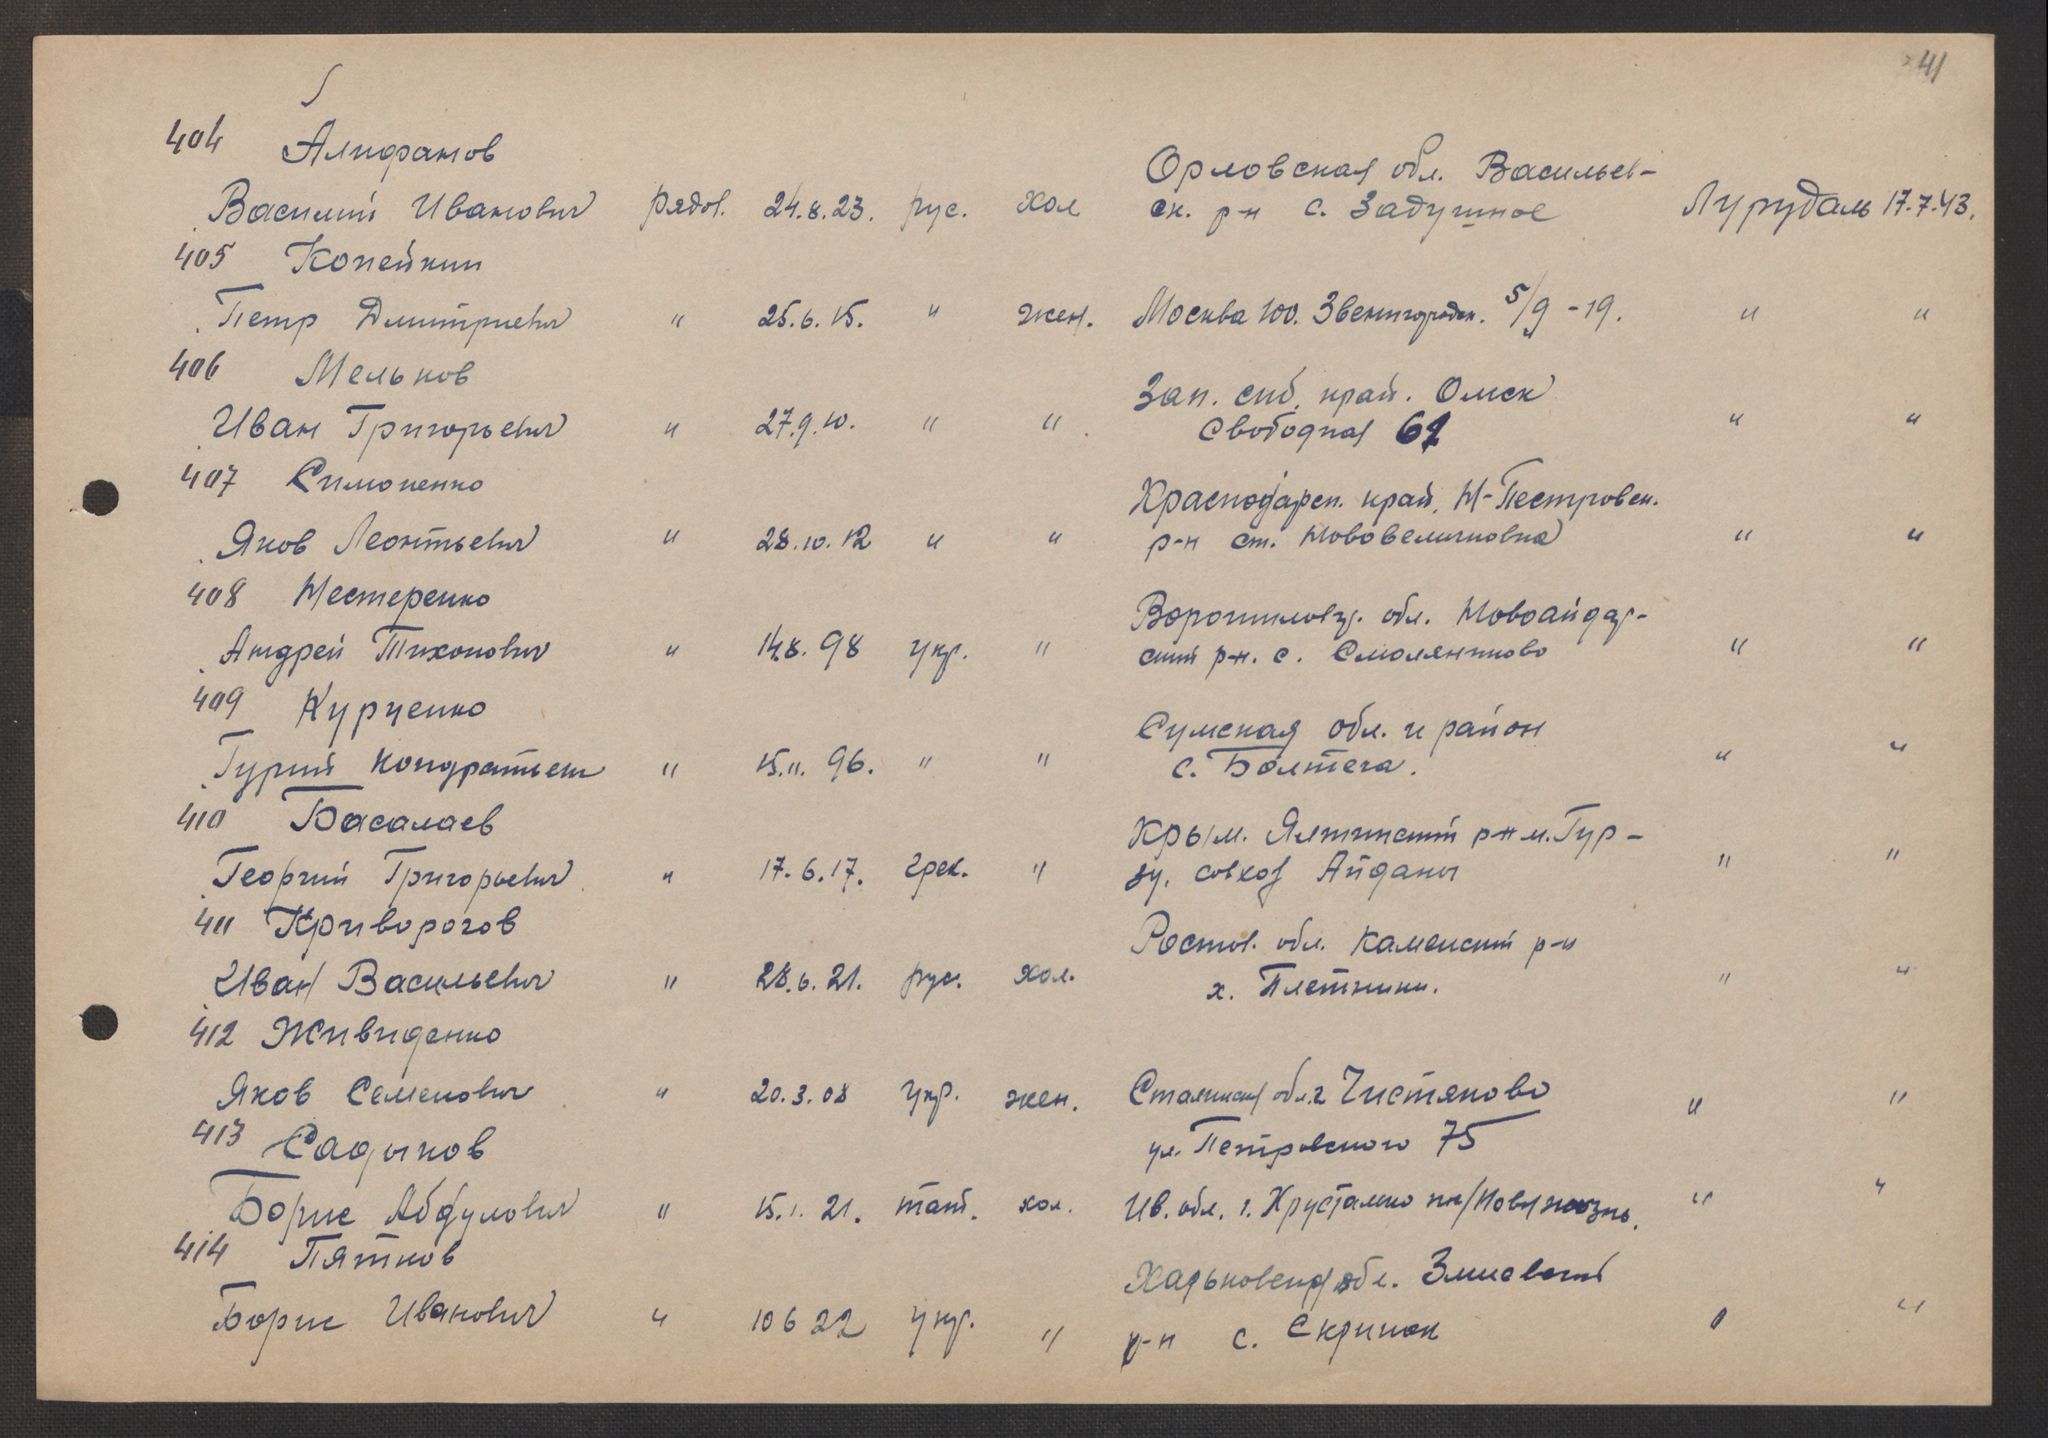 41
404 Алифанов
Орловская обл. Васильев-
Василий Иванович рядов. 24.8.23. рус. хол ск. р-н с. Задушное Лурудаль 17.7.43.
405 Копейкин
Петр Дмитриевич " 25.6.15. " жен. Москва 100. Звенигородск. 5/9 - 19. " "
406 Мельков
Зап. сиб. край. Омск
Иван Григорьевич " 27.9.10. " " Свободная " "
407 Симоненко
Краснодарск. край, Н-Пестровск.
Яков Леонтьевич " 28.10.12 " " р-н ст. Нововеличковка " "
408 Нестеренко
Ворошиловг. обл. Новоайдар-
Андрей Тихонович " 14.8.98 укр. " ский р-н. с. Смолянниково " "
409 Курченко
Сумская обл. и район
Гурий Кондратьев " 15.11.96. " " с. Болтега. " "
410 Басалаев
Крым. Ялтинский р-н м. Гур-
Георгий Григорьевич " 17.6.17. грек. " зу. совхоз Айданы " "
411 Криворогов
Ростов. обл. Каменский р-н
Иван Васильевич " 28.6.21. рус. хол. х. Плетники. " "
412 Живиденко
Яков Семенович " 20.3.08 укр. жен. Сталинская обл. г Чистяково " "
413 Садыков
ул. Петровского 75
Борис Абдулович " 15.1.21. тат. хол. Ив. обл. г. Хрустально " "
414 Пятков
Харьковская обл. Змиевский
Борис Иванович " 10 6 22 укр. " р-н с. Скрипок " "